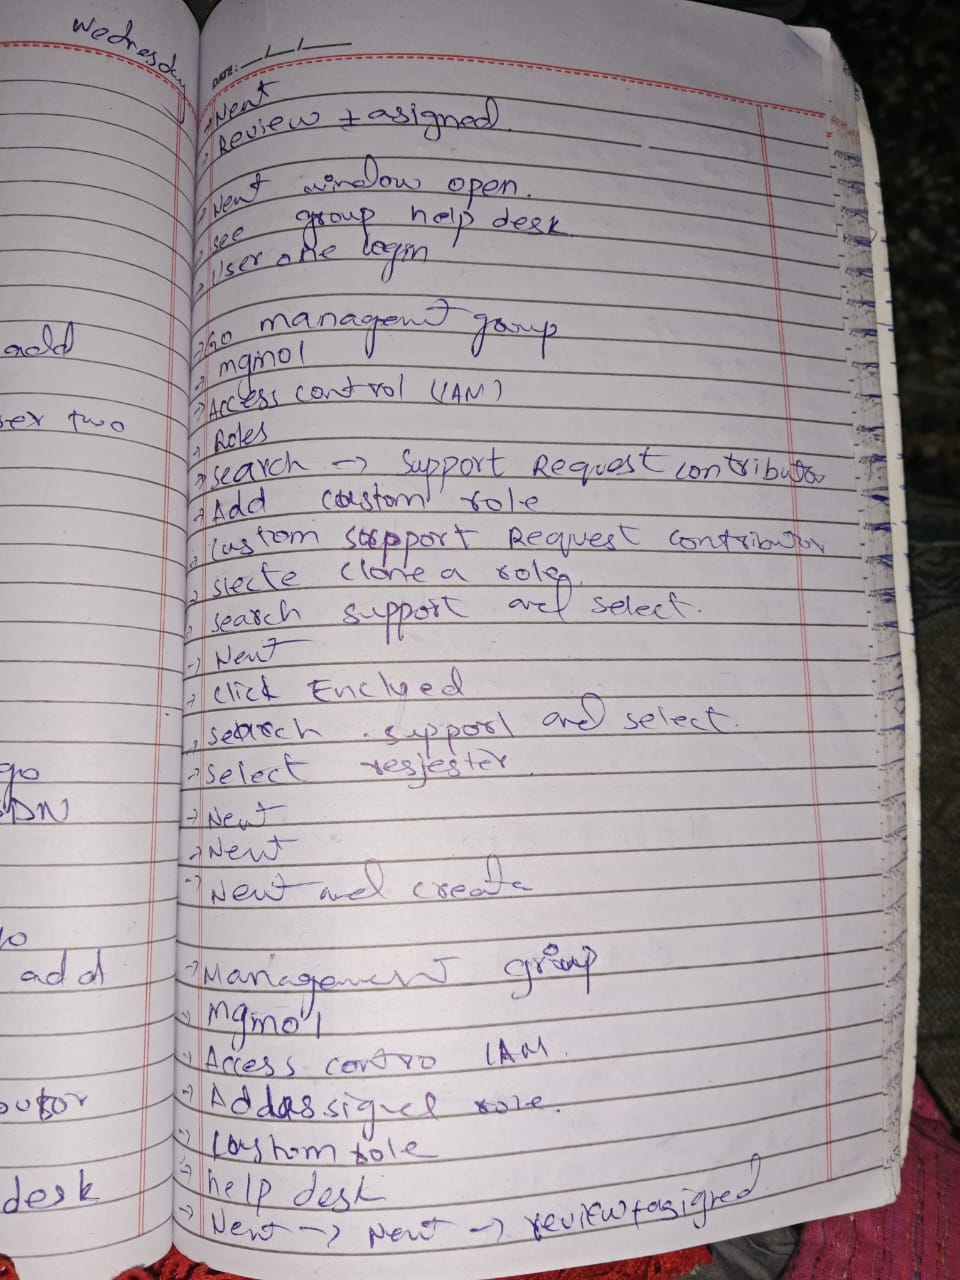 Wednesday
add
ser two
go
DN
to
add
butor
desk
DATE: __/__/__
→ Next
→ Review + asigned.
→ Next window open.
→ see group help desk
→ User one login
→ Go managent group
→ mgmo1
→ Access control (IAM)
→ Roles
→ search → Support Request contributor
→ Add coustom role
→ Custom support Request contributor
→ slecte clone a role.
→ search support and select.
→ Next
→ click Enclyed
→ search . support and select.
→ select resjester.
→ Next
→ Next
→ Next and create
→ Management group
→ mgmo1
→ Access contro IAM.
→ Add assigned role.
→ Custom role
→ help desk
→ Next → Next → review + asigned